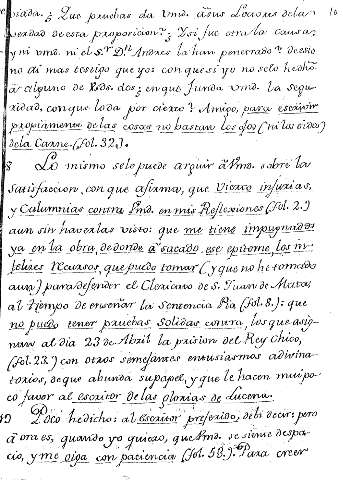 piada. ¿ Que pruebas da Vmd. á sus Lectores de la
verdad de esta proposicion? ¿ Y si fue otra la causa,
y ni Vmd. ni el Sr. Dn. Andres la han penetrado? de esto
no dá mas testigo que yo; con que si yo no se lo he dicho
á alguno de Vds. dos; en que funda Vmd. la segu-
ridad, con que lo da por cierto? Amigo, para escribir
propiamente de las cosas no bastan los ojos (ni los oidos)
de la Carne. (fol. 32.).
Lo mismo se le puede arguir á Vmd. sobre la
satisfaccion, con que afirma, que Vierto injurias,
y Calumnias contra Vmd. en mis Reflexiones (fol. 2.)
aun sin haverlas visto: que me tiene impugnado
ya en la obra, de donde á sacado ese epitome, los in-
felizes recursos, que puedo tomar (y que no he tomado
aun) para defender el Clericato de S. Juan de Mata
al tiempo de enseñar la Sentencia Pia (fol. 8.): que
no puedo tener pruebas solidas contra, los que asig-
nan al dia 23 de Abril la prision del Rey Chico,
(fol. 23.) con otros semejantes entusiasmos adivina-
torios, de que abunda su papel, y que le hacen mui po-
co favor al escritor de las glorias de Lucena.
Poco he dicho: al escritor preferido, debi decir; pero
á ora es, quando yo quiero, que Vmd. se siente despa-
cio, y me oiga con paciencia (fol. 53.). Para creer